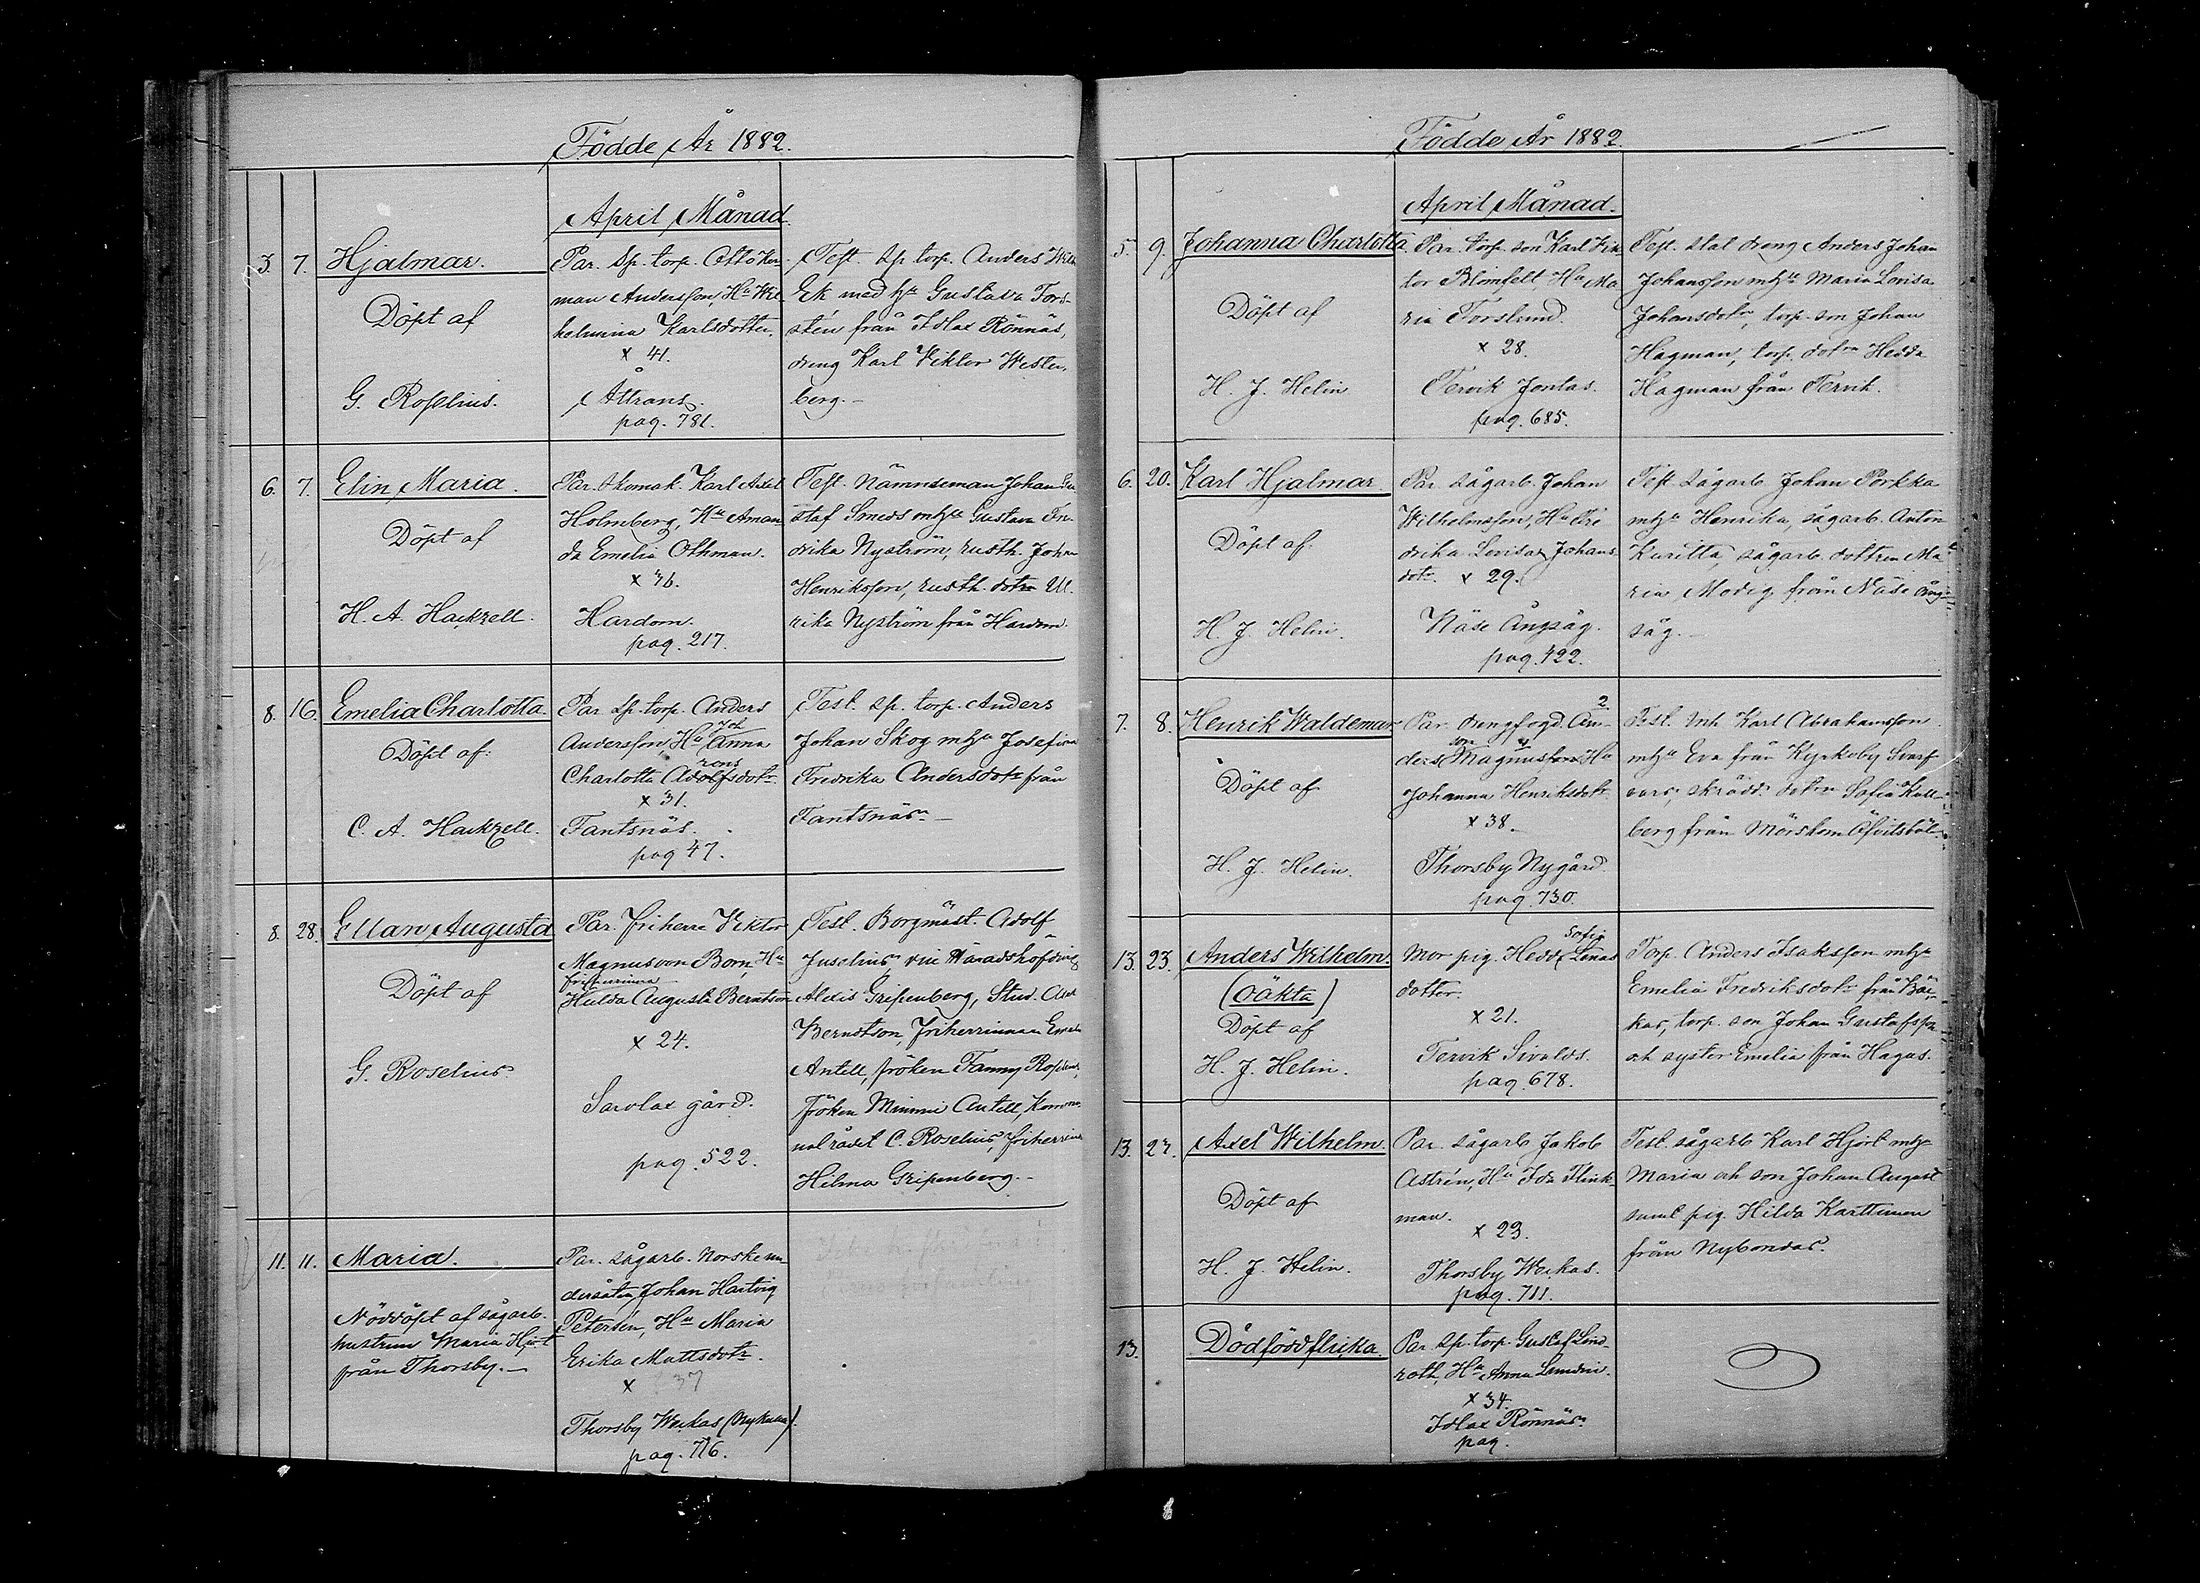 Födde År 1882.
April Månad.
3. 7. Hjalmar.
Döpt af
G. Roselius.
Par. sp. torp. Otto Her-
man Andersson, Hu Wil
helmina Karlsdotter.
x 41.
Åttrans.
pag. 781.
Test. sp. torp. Anders
Ek med hu Gustava Fors-
stén från Idlax Rönnäs,
dreng Karl Viktor Wester-
berg. -
6. 7. Elin Maria.
Döpt af
H. A. Hackzell.
Par. skomak. Karl Axel
Holmberg, Hu Aman
da Emelia Othman.
x 36.
Hardom.
pag. 217.
Test. Nämndeman Johan Gu
staf Smeds mhu Gustava Fre-
drika Nyström, rusth. Johan
Henriksson, rusth. dotrn Ul
rika Nyström från Hardom.
8. 16. Emelia Charlotta.
Döpt af
C. A. Hackzell.
Par. sp. torp. Anders
Andersson, Hu Anna
Charlotta Adolfsdotr
x 31.
Fantsnäs.
pag 47.
Test. sp. torp. Anders
Johan Skog mhu Josefina
Fredrika Andersdotr från
Fantsnäs. -
8. 28. Ellan Augusta
Döpt af
G. Roselius.
Par. friherre Viktor
Magnus von Born, Hu
friherrinna
Hulda Augusta Berntson
x 24.
Sarvlax gård.
pag. 522.
Test. Borgmäst. Adolf
Juselius, vice Häradshöfding
Alexis Gripenberg, Stud. Axel
Berndtson, friherrinnan Emelie
Antell, fröken Fanny Roselius,
fröken Mimmi Antell, Kommu-
nalrådet C. Roselius, friherrin
Hilma Gripenberg. -
11. 11. Maria.
Nöddöpt af sågarb.
hustrun Maria Hjort
från Thorsby. -
Par. sågarb. Norske un-
dersåten, Johan Hartvig
Petersén, Hu Maria
Erika Mattsdotr.
x 37
Thorsby Weckas (Nykulla).
pag. 716.
Födde År 1882.
April Månad.
5. 9. Johanna Charlotta.
Döpt af
H. J. Helin
Par. torp. son Karl Vik
tor Blomfelt, Hu Ma
ria Forslund.
x 28.
Tervik Jontas.
pag. 685.
Test. stat dreng Anders Johan
Johansson mhu Maria Lovisa
Johansdotr, torp. son Johan
Hagman, torp. dotrn Hedda
Hagman från Tervik.
6. 20. Karl Hjalmar
Döpt af
H. J. Helin.
Par. sågarb. Johan
Wilhelmsson, Hu Fre
drika Lovisa Johans
dotr. x 29.
Näse Ångsåg.
pag. 422.
Test. sågarb. Johan Porkka
mhu Henrika, sågarb. Anton
Kuritta, sågarb. dottren Ma
ria Modig från Näse Ång-
såg. -
7. 8. Henrik Waldemar
Döpt af
H. J. Helin.
Par. drengfogd. An-
ders Magnusson Hu
Johanna Henriksdotr
x 38.
Thorsby Nygård.
pag. 730.
Test. Inh. Karl Abrahamsson
mhu Eva från Kyrkoby Svarf
vars, skrädd. dotrn Sofia Kull-
berg från Mörskom
13. 23. Anders Wilhelm.
(oäkta)
Döpt af
H. J. Helin.
Sofia
Mor pig. Hedd Linas
dotter.
x 21.
Tervik Sivalds.
pag. 678.
Torp. Anders Isaksson mhu
Emelia Fredriksdotr från Bäc-
kas, torp. son Johan Gustafsson
och syster Emelia från Hagas.
13. 27. Axel Wilhelm.
Döpt af
H. J. Helin.
Par. sågarb. Jakob
Astrén, Hu Ida Flink-
man.
x 23.
Thorsby Weckas.
pag. 711.
Test. sågarb Karl Hjort mhu
Maria och son Johan August
samt pig. Hilda Karttunen
från Nybondas.
13. Dödfödd flicka.
Par. sp. torp. Gustaf Lind-
roth, Hu Anna Lundin.
x 34.
Idlax Rönnäs.
pag.